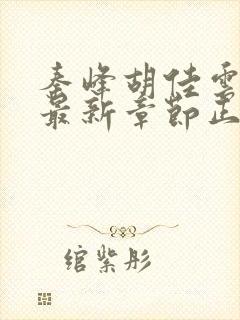 秦峰胡佳雲
最新章節正
綰紫彤